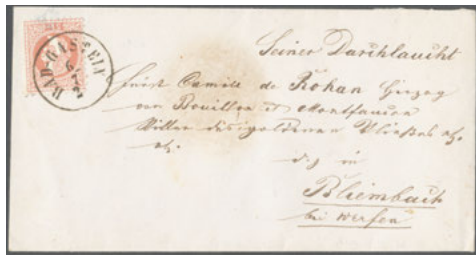 BAD-GASTEIN
6
7
Seiner Durchlaucht
Fürst Camille de Rohan Herzog
von Bouillon et Montbazon
Ritter des goldenen Vließes etc.
etc.
in
Bliembach
bei Werfen